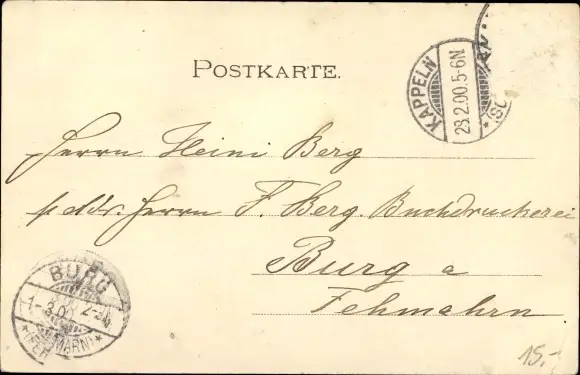 POSTKARTE.
KAPPELN
28.2.00.5-6N
*(SC
Herrn Heini Berg
p. adr. Herrn F. Berg. Buchdruckerei
Burg a
Fehmahrn
BURG
1-3.00 2-3N
*(FEHMARN)*
15.-